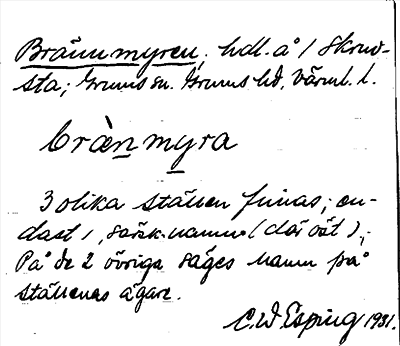 Brännmyren, hdl. å 1 Skruv-
sta; Grums sn. Grums hd, Värml. l.
bràn myra
3 olika ställen finnas; en-
dast 1, särsk. namn (där öst);
På de 2 övriga säges namn på
ställenas ägare.
C. W Esping 1931.